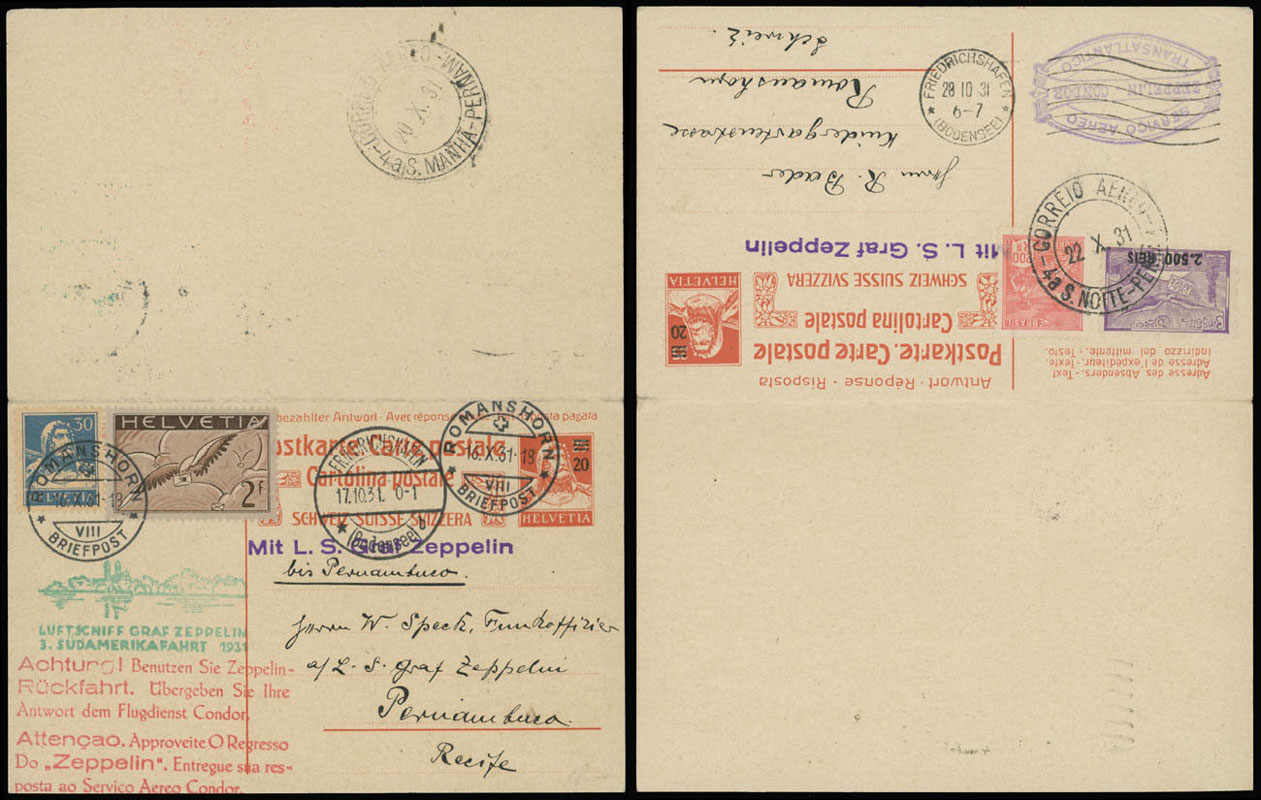 CORREIO
20 X 31
-4a S. MANHÃ-PERNAM-
bezahlter Antwort - Avec réponse
sta pagata
30
HELVETIA
HELVETIA
2 F
Postkarte. Carte postale
Cartolina postale
SCHWEIZ SUISSE SVIZZERA
20
HELVETIA
ROMANSHORN
16.X.31-18
VIII
BRIEFPOST
FRIEDRICHSHAFEN
17.10.31. 0-1
(Bodensee) b
ROMANSHORN
16.X.31-18
VIII
BRIEFPOST
Mit L. S. Graf Zeppelin
bis Pernambuco.
LUFTSCHIFF GRAF ZEPPELIN
3. SÜDAMERIKAFAHRT 1931
Herrn W. Speck, Funkoffizier
a/L. S. Graf Zeppelin
Pernambuco.
Recife
Achtung! Benutzen Sie Zeppelin-
Rückfahrt. Übergeben Sie Ihre
Antwort dem Flugdienst Condor.
Attençao. Approveite O Regresso
Do „Zeppelin". Entregue sua res-
posta ao Serviço Aereo Condor.
Antwort - Réponse - Risposta
Postkarte. Carte postale
Cartolina postale
SCHWEIZ SUISSE SVIZZERA
20
HELVETIA
Mit L. S. Graf Zeppelin
Adresse des Absenders. - Text.
Adresse de l'expéditeur. - Texte.
Indirizzo del mittente. - Testo.
2.500 REIS
BRASIL
CORREIO AEREO
22 X 31
-4a S. NOITE-PER
Herrn R. Bader
Kindergartenstrasse
Romanshorn
Schweiz.
FRIEDRICHSHAFEN
28 10 31
6-7
(BODENSEE)
SERVIÇO AEREO
ZEPPELIN CONDOR
TRANSATLANTICO